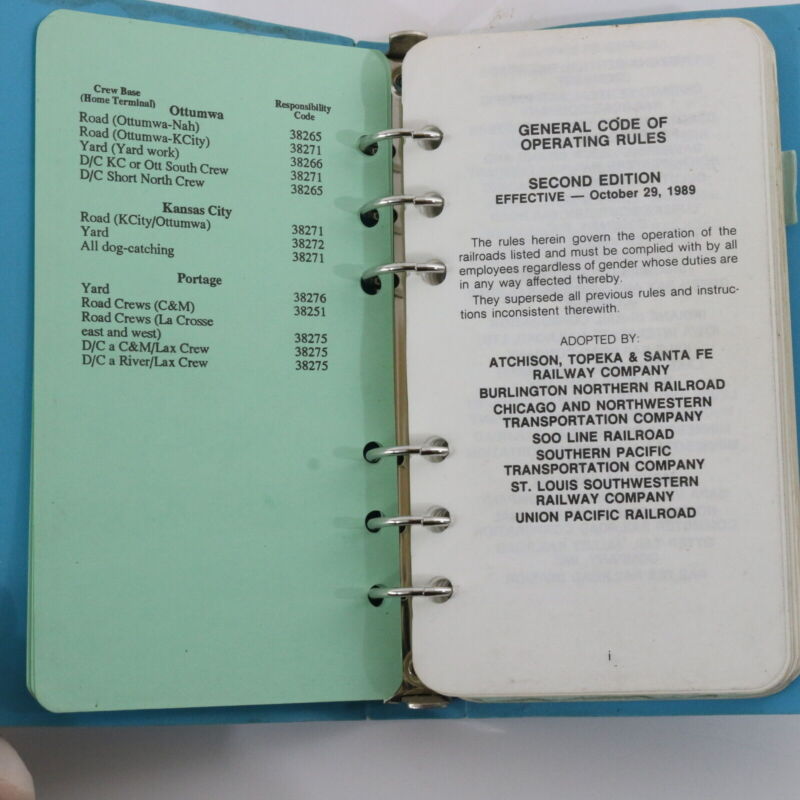 Crew Base
(Home Terminal)
Responsibility
Code
Ottumwa
Road (Ottumwa-Nah) 38265
Road (Ottumwa-KCity) 38271
Yard (Yard work) 38266
D/C KC or Ott South Crew 38271
D/C Short North Crew 38265
Kansas City
Road (KCity/Ottumwa) 38271
Yard 38272
All dog-catching 38271
Portage
Yard 38276
Road Crews (C&M) 38251
Road Crews (La Crosse
east and west) 38275
D/C a C&M/Lax Crew 38275
D/C a River/Lax Crew 38275
GENERAL CODE OF
OPERATING RULES
SECOND EDITION
EFFECTIVE — October 29, 1989
The rules herein govern the operation of the
railroads listed and must be complied with by all
employees regardless of gender whose duties are
in any way affected thereby.
They supersede all previous rules and instruc-
tions inconsistent therewith.
ADOPTED BY:
ATCHISON, TOPEKA & SANTA FE
RAILWAY COMPANY
BURLINGTON NORTHERN RAILROAD
CHICAGO AND NORTHWESTERN
TRANSPORTATION COMPANY
SOO LINE RAILROAD
SOUTHERN PACIFIC
TRANSPORTATION COMPANY
ST. LOUIS SOUTHWESTERN
RAILWAY COMPANY
UNION PACIFIC RAILROAD
i